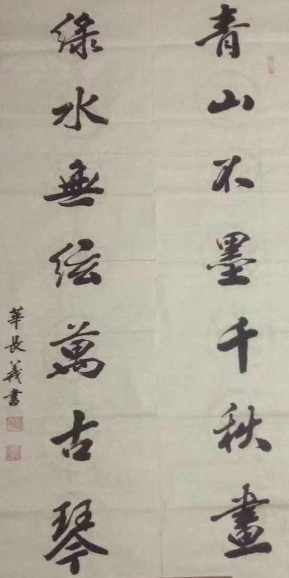 青山不墨千秋畫
綠水無絃萬古琴
華長義書